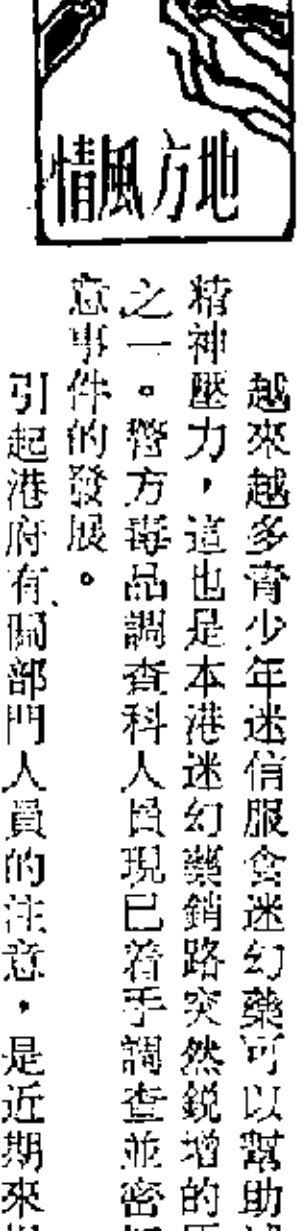 地方風情
越來越多青少年迷信服食迷幻藥可以幫助
精神壓力，這也是本港迷幻藥銷路突然銳增的
之一。警方毒品調查科人員現已着手調查並密
意事件的發展。
引起港府有關部門人員的注意，是近期來